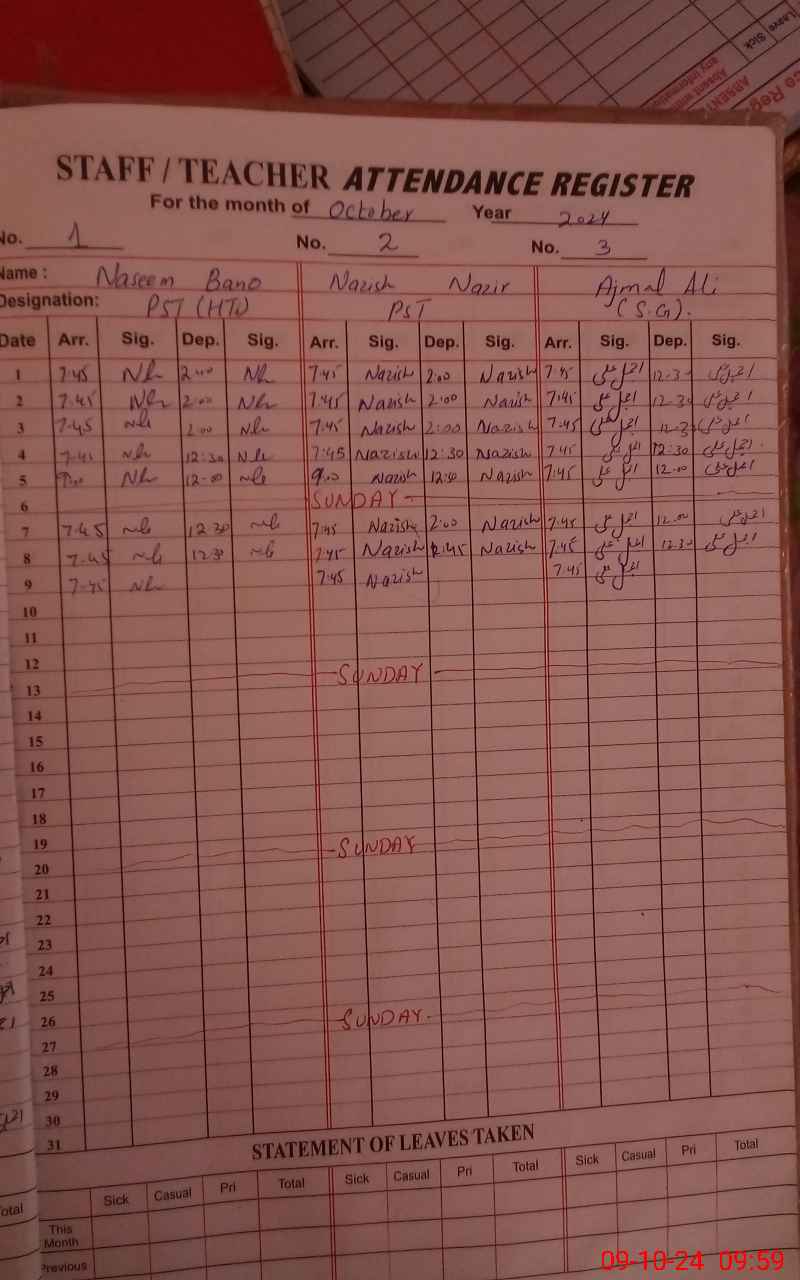 Leave
Sick
STAFF / TEACHER ATTENDANCE REGISTER
For the month of October Year 2024
No. 1 No. 2 No. 3
Name : Naseem Bano Nazish Nazir Ajmal Ali
Designation: PST (HT) PST (S.G).
Date Arr. Sig. Dep. Sig. Arr. Sig. Dep. Sig. Arr. Sig. Dep. Sig.
1 7:45 Nb 2:00 Nb 7:45 Nazish 2:00 Nazish 7:45 اجمل علی 12-30 اجمل علی
2 7.45 Nb 2:00 Nb 7:45 Nazish 2:00 Nazish 7:45 اجمل علی 12-30 اجمل علی
3 7-45 Nb 2:00 Nb 7:45 Nazish 2:00 Nazish 7:45 اجمل علی 12-30 اجمل علی
4 7.45 Nb 12:30 Nb 7:45 Nazish 12:30 Nazish 7:45 اجمل علی 12:30 اجمل علی
5 9:00 Nb 12-00 Nb 9:00 Nazish Nazish 7:45 اجمل علی 12-00 اجمل علی
6 SUNDAY
7 7.45 Nb 12 30 Nb 7:45 Nazish 2:00 Nazish 7:45 اجمل علی 12.00 اجمل علی
8 7.45 Nb 12:30 Nb 7:45 Nazish Nazish 7:45 اجمل علی 12.30 اجمل علی
9 7-45 Nb 7:45 Nazish 7:45 اجمل علی
10
11
12
13 SUNDAY
14
15
16
17
18
19
20 SUNDAY
21
22
23
24
25
26
27 SUNDAY
28
29
30
31
STATEMENT OF LEAVES TAKEN
Sick Casual Pri Total Sick Casual Pri Total Sick Casual Pri Total
This
Month
Previous
09-10-24 09:59